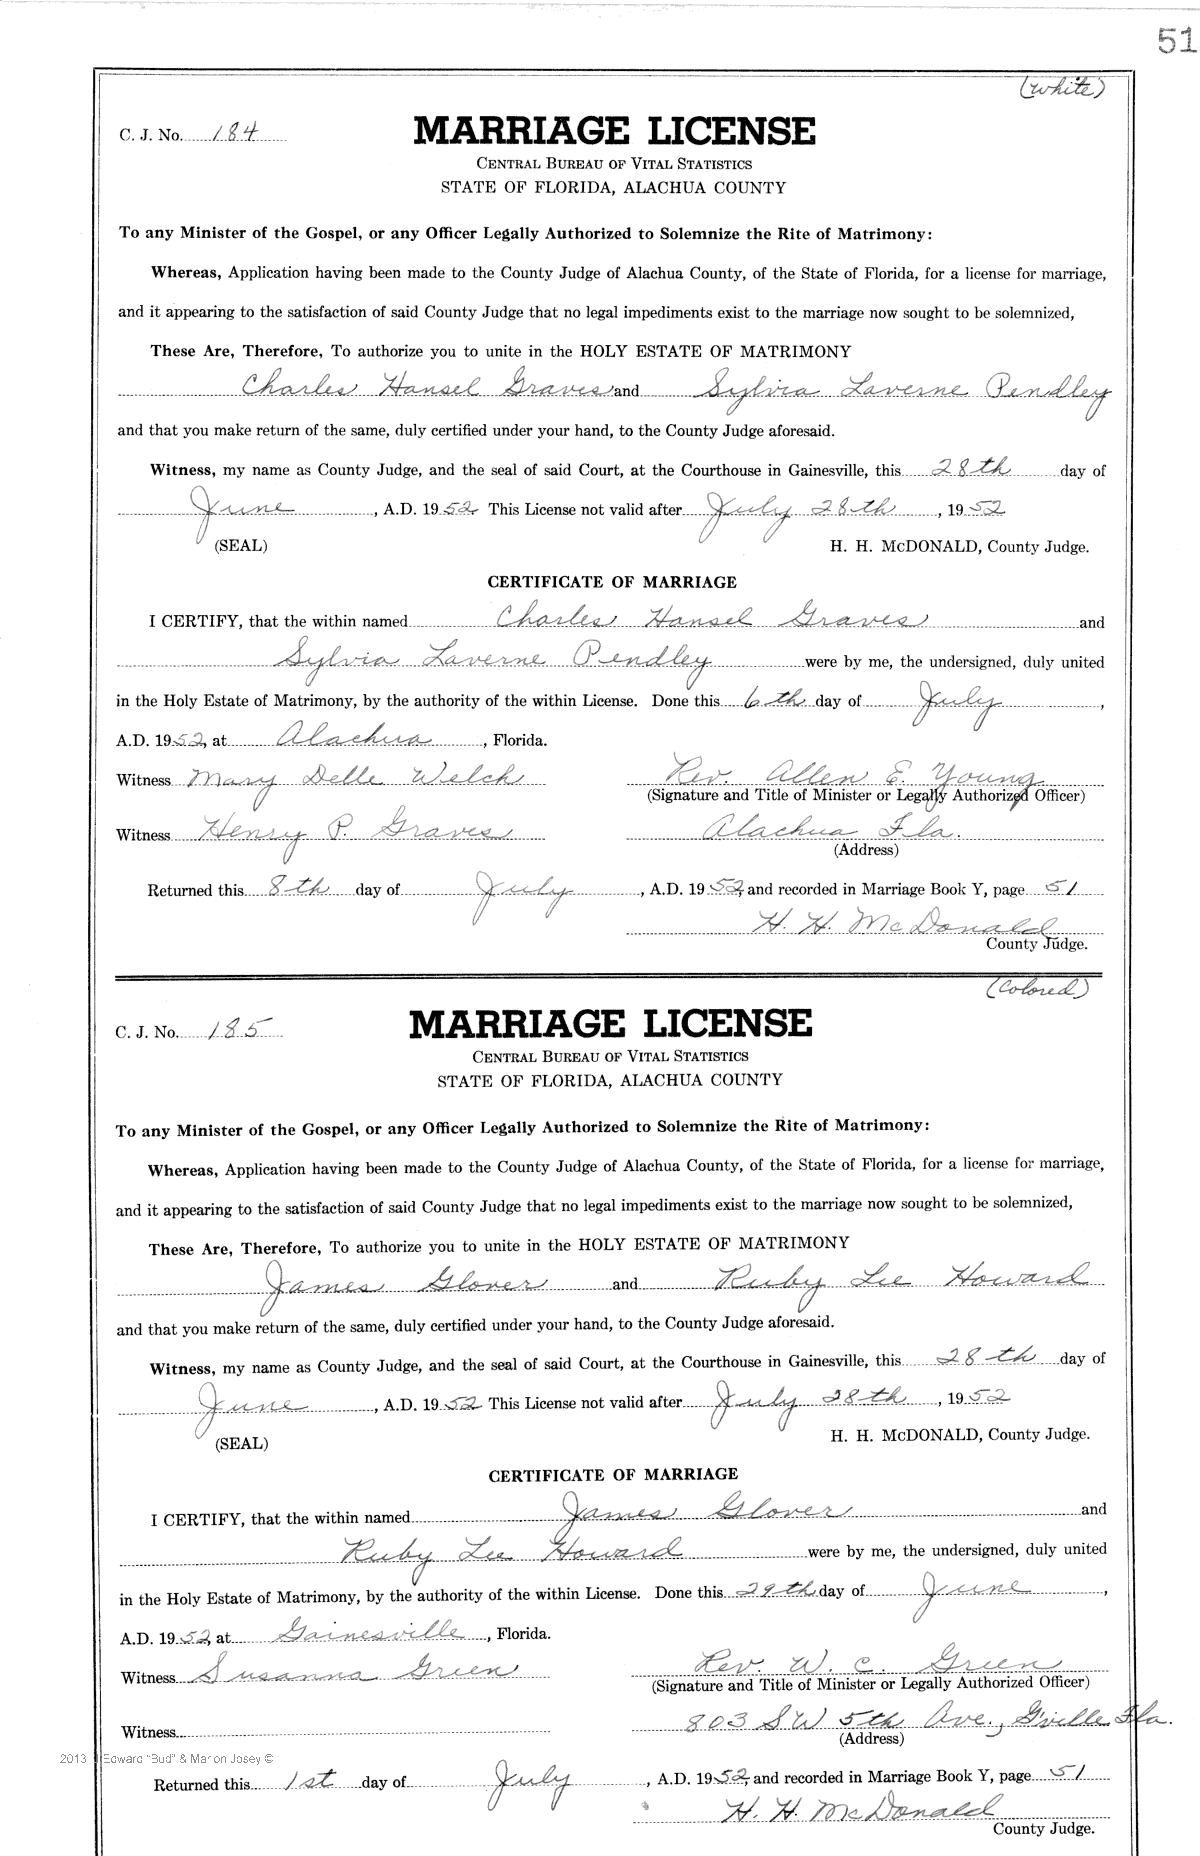 51
(White)
C. J. No. 184
MARRIAGE LICENSE
CENTRAL BUREAU OF VITAL STATISTICS
STATE OF FLORIDA, ALACHUA COUNTY
To any Minister of the Gospel, or any Officer Legally Authorized to Solemnize the Rite of Matrimony:
Whereas, Application having been made to the County Judge of Alachua County, of the State of Florida, for a license for marriage,
and it appearing to the satisfaction of said County Judge that no legal impediments exist to the marriage now sought to be solemnized,
These Are, Therefore, To authorize you to unite in the HOLY ESTATE OF MATRIMONY
Charles Hansel Graves and Sylvia Laverne Pendley
and that you make return of the same, duly certified under your hand, to the County Judge aforesaid.
Witness, my name as County Judge, and the seal of said Court, at the Courthouse in Gainesville, this 28th day of
June, A.D. 1952 This License not valid after July 28th, 1952
(SEAL) H. H. McDONALD, County Judge.
CERTIFICATE OF MARRIAGE
I CERTIFY, that the within named Charles Hansel Graves and
Sylvia Laverne Pendley were by me, the undersigned, duly united
in the Holy Estate of Matrimony, by the authority of the within License. Done this 6th day of July,
A.D. 1952, at Alachua, Florida.
Witness Mary Delle Welch Rev. Allen E. Young
(Signature and Title of Minister or Legally Authorized Officer)
Witness Henry P. Graves Alachua Fla.
(Address)
Returned this 8th day of July, A.D. 1952, and recorded in Marriage Book Y, page 51
H. H. McDonald
County Judge.
(Colored)
C. J. No. 185
MARRIAGE LICENSE
CENTRAL BUREAU OF VITAL STATISTICS
STATE OF FLORIDA, ALACHUA COUNTY
To any Minister of the Gospel, or any Officer Legally Authorized to Solemnize the Rite of Matrimony:
Whereas, Application having been made to the County Judge of Alachua County, of the State of Florida, for a license for marriage,
and it appearing to the satisfaction of said County Judge that no legal impediments exist to the marriage now sought to be solemnized,
These Are, Therefore, To authorize you to unite in the HOLY ESTATE OF MATRIMONY
James Glover and Ruby Lee Howard
and that you make return of the same, duly certified under your hand, to the County Judge aforesaid.
Witness, my name as County Judge, and the seal of said Court, at the Courthouse in Gainesville, this 28th day of
June, A.D. 1952 This License not valid after July 28th, 1952
(SEAL) H. H. McDONALD, County Judge.
CERTIFICATE OF MARRIAGE
I CERTIFY, that the within named James Glover and
Ruby Lee Howard were by me, the undersigned, duly united
in the Holy Estate of Matrimony, by the authority of the within License. Done this 29th day of June,
A.D. 1952, at Gainesville, Florida.
Witness Susanna Green Rev. W. C. Green
(Signature and Title of Minister or Legally Authorized Officer)
Witness 803 SW 5th Ave., G'ville Fla.
(Address)
2013 Edward "Bud" & Marion Josey ©
Returned this 1st day of July, A.D. 1952, and recorded in Marriage Book Y, page 51
H. H. McDonald
County Judge.